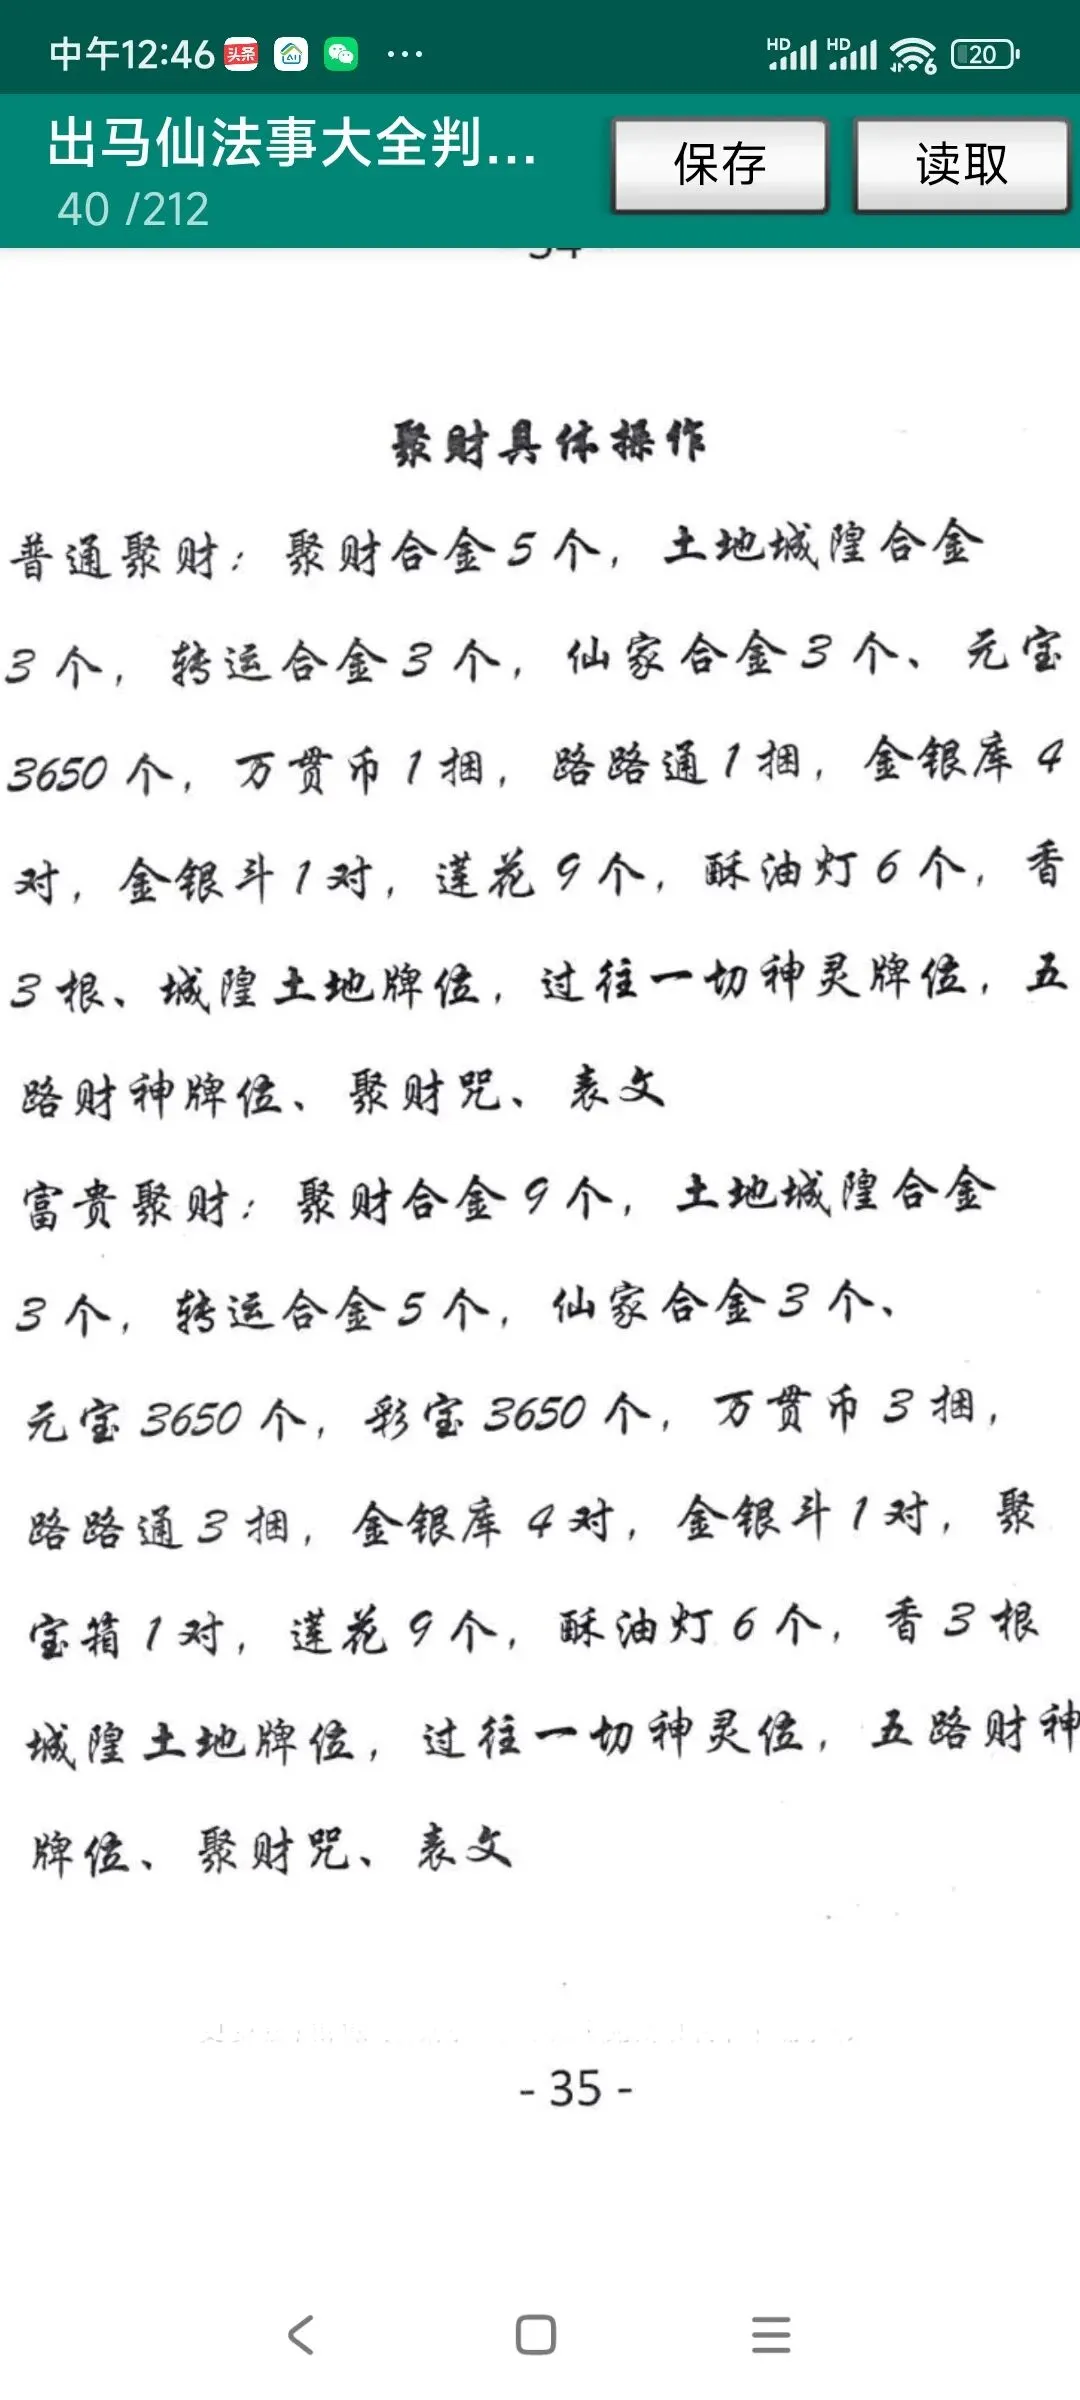 中午12:46 头条 AI ··· HD HD 6 20
出马仙法事大全判... 保存 读取
40 /212
聚财具体操作
普通聚财：聚财合金5个，土地城隍合金
3个，转运合金3个，仙家合金3个、元宝
3650个，万贯币1捆，路路通1捆，金银库4
对，金银斗1对，莲花9个，酥油灯6个，香
3根、城隍土地牌位，过往一切神灵牌位，五
路财神牌位、聚财咒、表文
富贵聚财：聚财合金9个，土地城隍合金
3个，转运合金5个，仙家合金3个、
元宝3650个，彩宝3650个，万贯币3捆，
路路通3捆，金银库4对，金银斗1对，聚
宝箱1对，莲花9个，酥油灯6个，香3根
城隍土地牌位，过往一切神灵位，五路财神
牌位、聚财咒、表文
- 35 -